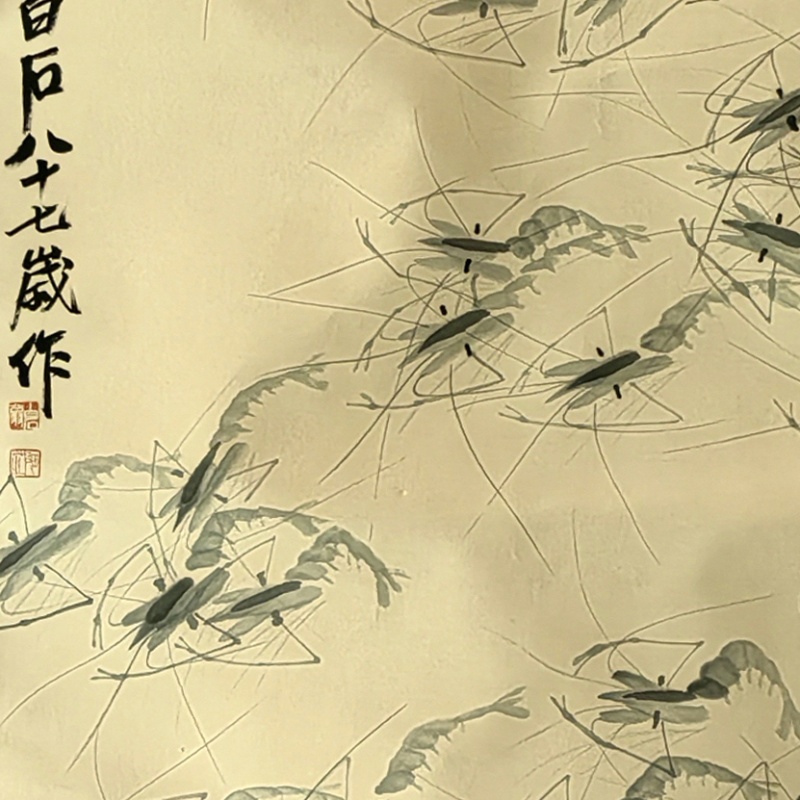 白石八十七歲作